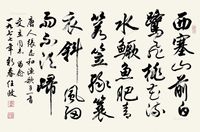 西塞山前白
鷺飛桃花流
水鱖魚肥青
箬笠綠蓑
衣斜風細
雨不須歸
唐人張志和漁歌子一首
一九七七年初春任政